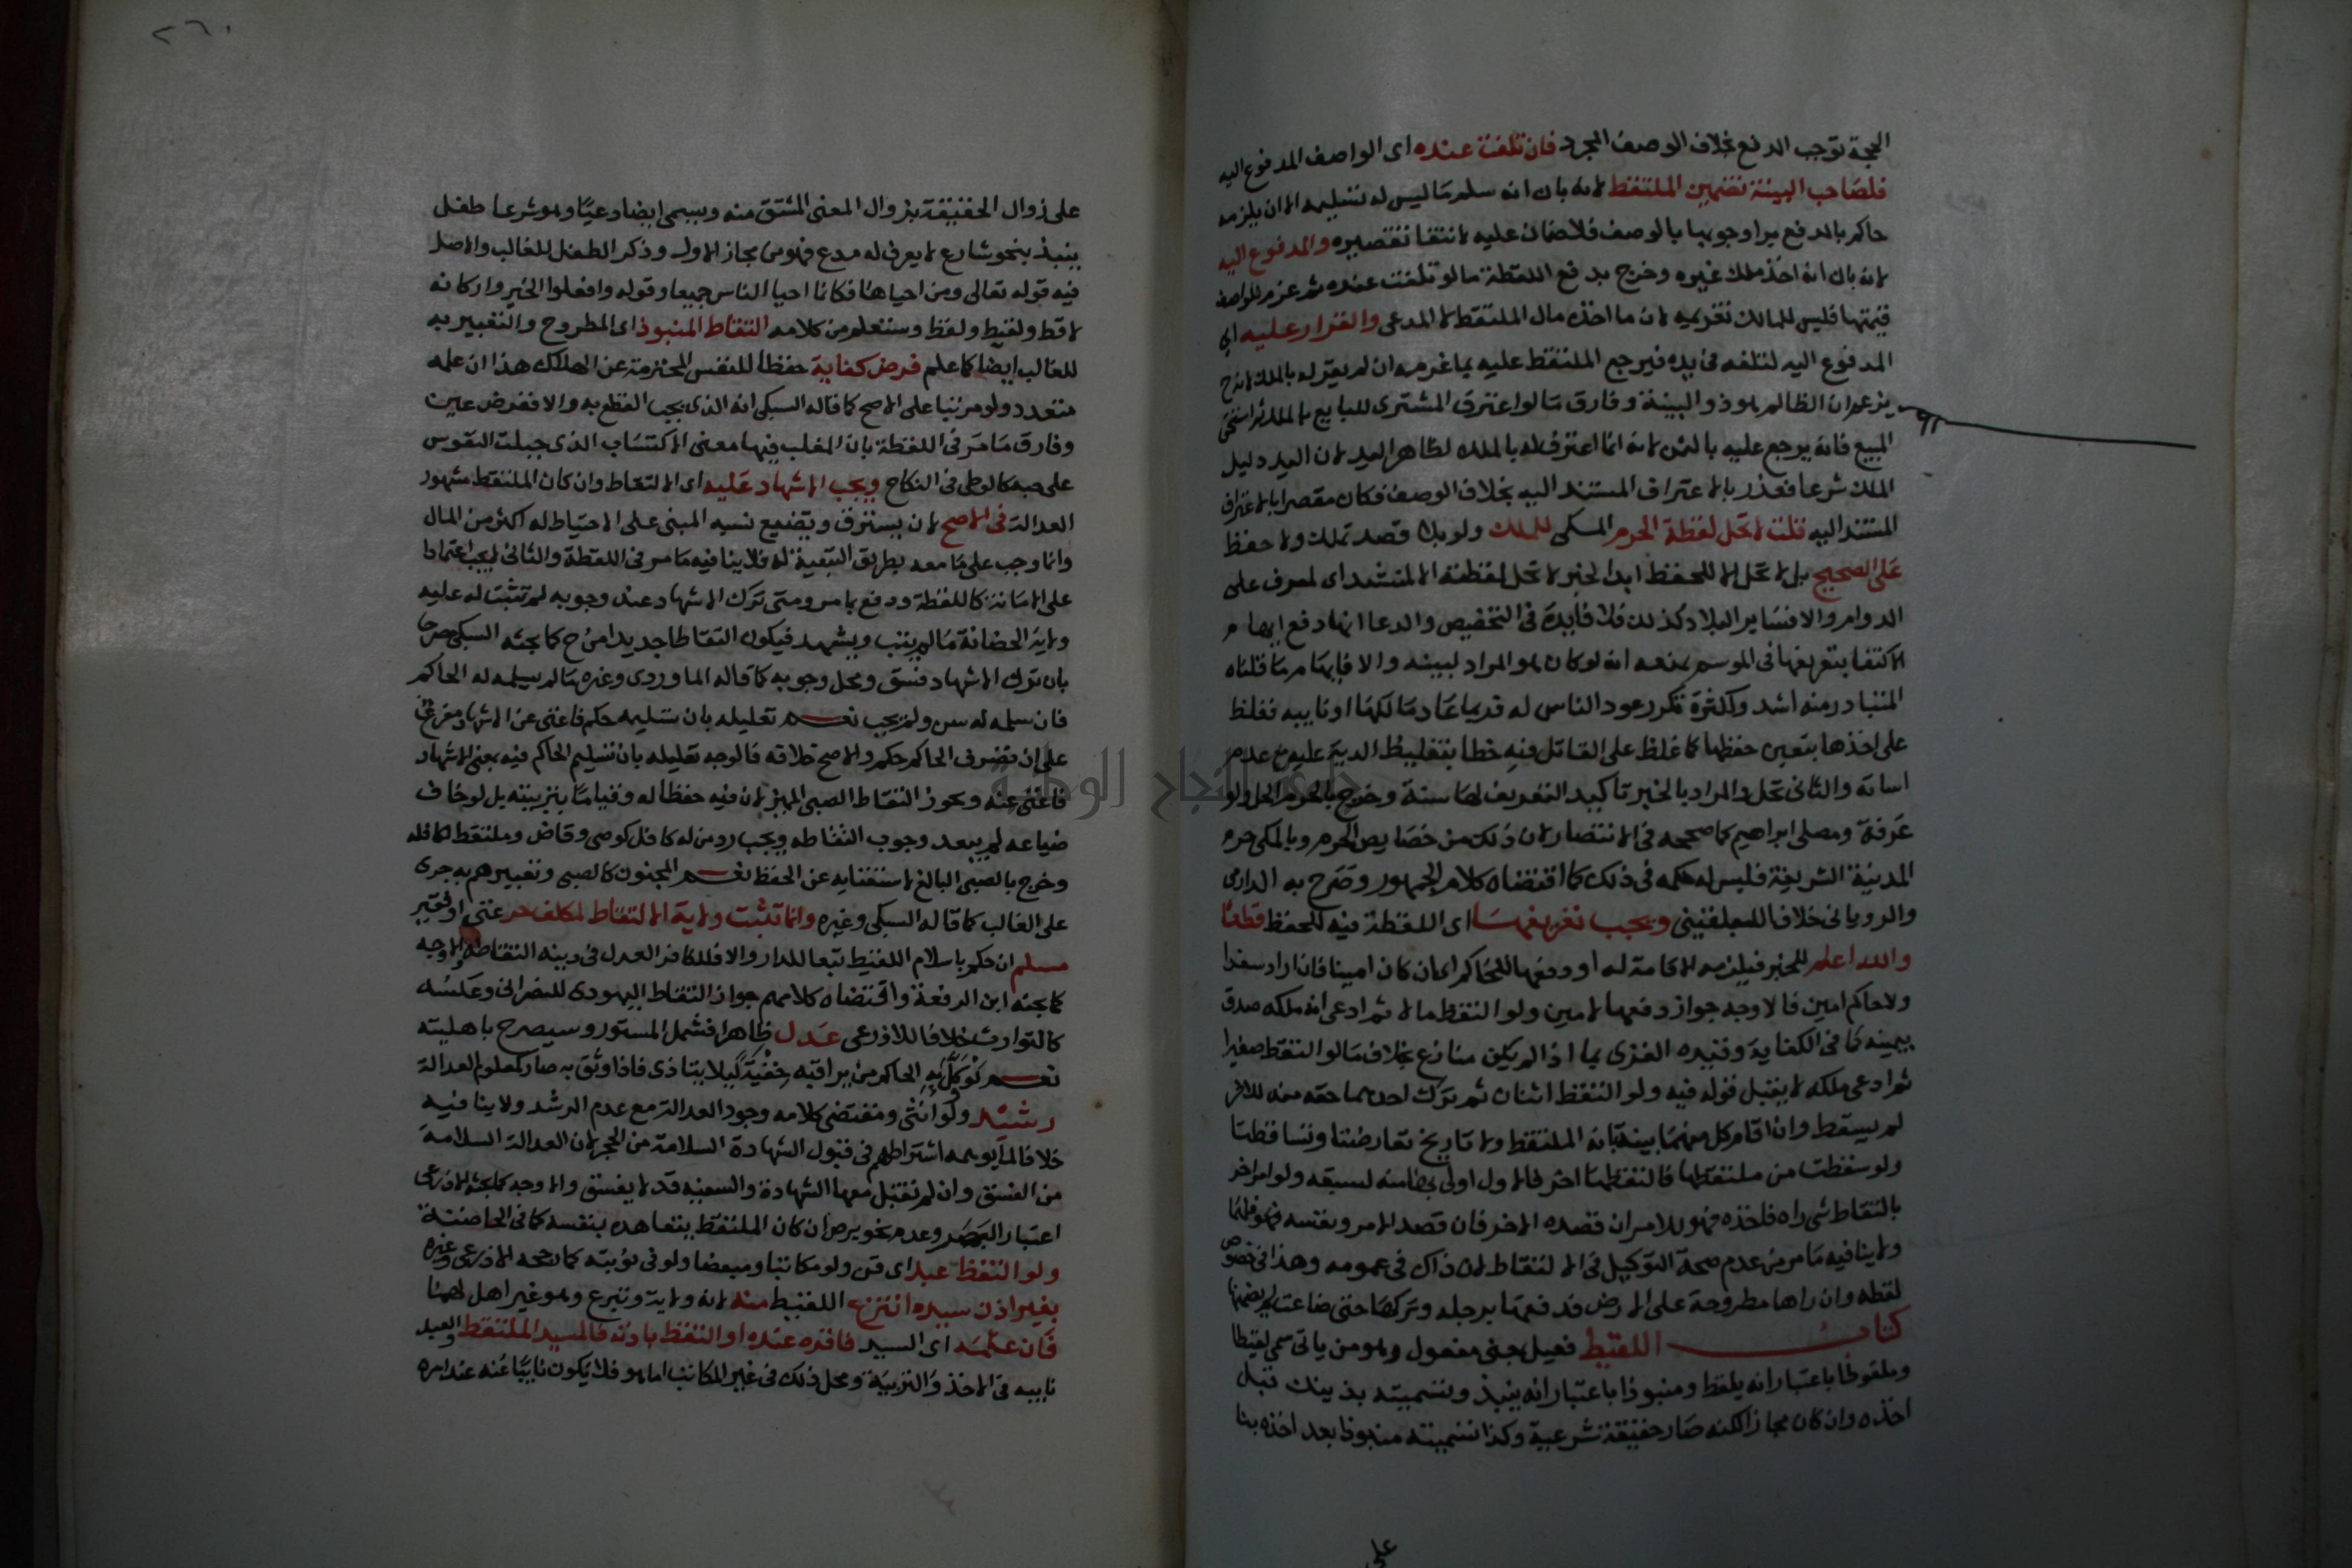 الحجة توجب الدفع بخلاف الوصف المجرد فان تلفت عنده اى الواصف المدفوع اليه
فلصاحب البينة تضمين الملتقط لانه بان انه سلم ما ليس له تسليمه الا ان يلزمه
حاكم بالدفع يرا وجوبها بالوصف فلا ضمان عليه لانتفا تقصيره والمدفوع اليه
لانه بان انه اخذ ملك غيره وخرج بدفع اللقطة ما لو تلفت عنده ثم غرم للواصف
قيمتها فليس للمالك تغريمه لان ما اخذه مال الملتقط لا المدعى والقرار عليه اى
المدفوع اليه لتلفه فى يده فيرجع الملتقط عليه بما غرمه ان لم يقر له بالملك لانه ح
يزعم ان الظالم هو ذو البينة وفارق ما لو اعترف المشترى للبايع بالملك ثم استحق
المبيع فانه يرجع عليه بالثمن لانه انما اعترف له بالملك لظاهر اليد لان اليد دليل
الملك شرعا فعذر بالاعتراف المستند اليه بخلاف الوصف فكان مقصرا بالاعتراف
المستند اليه قلت لا تحل لقطة الحرم المكى للملك ولو بلا قصد تملك ولا حفظ
على الصحيح بل لا تحل الا للحفظ ابدا لخبر لا تحل لقطته الا لمنشد اى لمعرف على
الدوام والا فساير البلاد كذلك فلا فايدة فى التخصيص والدعا انها دفع ايهام
الاكتفا بتعريفها فى الموسم يمنعه انه لو كان هو المراد لبينه والا فايهام ما قلناه
المتبادر منه اشد ولكثرة تكرر عود الناس له فربما عاد مالكها او نايبه فغلظ
على اخذها بتعين حفظها كما غلظ على القاتل فيه خطا بتغليظ الدية عليه مع عدم
اساته والثانى تحل والمراد بالخبر تاكيد التعريف لها سنة وخرج بالحرم الحل ولو
عرفة ومصلى ابراهيم كما صححه فى الانتصار لان ذلك من خصايص الحرم وبالمكى حرم
المدينة الشريفة فليس له حكمه فى ذلك كما اقتضاه كلام الجمهور وصرح به الدارمى
والرويانى خلافا للبلقينى ويجب تعريفها اى اللقطة فيه للحفظ قطعا
والله اعلم للخبر فيلزمه الاقامة له او دفعها للحاكم اى ان كان امينا فان اراد سفرا
ولا حاكم امين فالاوجه جواز دفعها لامين ولو التقط مالا ثم ادعى انه ملكه صدق
بيمينه كما فى الكفاية وقيده الغزى بما اذا لم يكن منازع بخلاف ما لو التقط صغيرا
ثم ادعى ملكه لا يقبل قوله فيه ولو التقط اثنان ثم ترك احدهما حقه منه للاخر
لم يسقط وان اقام كل منهما بينة بانه الملتقط ولا تاريخ تعارضتا وتساقطتا
ولو سقطت من ملتقطها فالتقطها اخر فالاول اولى بها منه لسبقه ولو امر اخر
بالتقاط شى راه فاخذه فهو للامر ان قصده الاخر فان قصد الامر ونفسه فهو لهما
ولا ينافيه ما مر من عدم صحة التوكيل فى الالتقاط لان ذاك فى عمومه وهذا فى خصوص
لقطه وان راها مطروحة على الارض فدفعها برجله وتركها حتى ضاعت لم يضمنها
كتاب اللقيط فعيل بمعنى مفعول وهو من ياتى سمى لقيطا
وملقوطا باعتبار انه يلقط ومنبوذا باعتبار انه ينبذ وتسميته بذينك قبل
اخذه وان كان مجازا لكنه صار حقيقة شرعية وكذا تسميته منبوذا بعد اخذه بنا
على
٢٦٠
على زوال الحقيقة بزوال المعنى المشتق منه ويسمى ايضا دعيا وهو شرعا طفل
ينبذ بنحو شارع لا يعرف له مدع فهو من مجاز الاول وذكر الطفل للغالب والاصل
فيه قوله تعالى ومن احياها فكانما احيا الناس جميعا وقوله وافعلوا الخير واركانه
لاقط ولقيط ولقط وستعلم من كلامه التقاط المنبوذ اى المطروح والتعبير به
للغالب ايضا كما علم فرض كفاية حفظا للنفس المحترمة عن الهلاك هذا ان علمه
متعدد ولو مرتبا على الاصح كما قاله السبكى انه الذى يجب القطع به والا ففرض عين
وفارق ما مر فى اللقطة بان المغلب فيها معنى الاكتساب الذى جبلت النفوس
على حبه كالوطى فى النكاح ويجب الاشهاد عليه اى الالتقاط وان كان الملتقط مشهور
العدالة فى الاصح لان يسترق ويضيع نسبه المبنى على الاحتياط له اكثر من المال
وانما وجب على ما معه بطريق التبعية له فلا ينافيه ما مر فى اللقطة والثانى لا يجب اعتمادا
على الامانة كاللقطة ودفع بما مر ومتى ترك الاشهاد عند وجوبه لم تثبت له عليه
ولاية الحضانة ما لم يتب ويشهد فيكون التقاطا جديدا من ح كما بحثه السبكى مصرحا
بان ترك الاشهاد فسق ومحل وجوبه كما قاله الماوردى وغيره ما لم يسلمه له الحاكم
فان سلمه له سن ولم يجب نعم تعليله بان تسليمه حكم فاغنى عن الاشهاد مفرع
على ان تصرف الحاكم حكم والاصح خلافه فالوجه تعليله بان تسليم الحاكم فيه بمعنى الاشهاد
فاغنى عنه ويجوز التقاط الصبى المميز لان فيه حفظا له وقياما بتربيته بل لو خاف
ضياعه لم يبعد وجوب التقاطه ويجب رد من له كافل كوصى وقاض وملتقط لكافله
وخرج بالصبى البالغ لاستغنايه عن الحفظ نعم المجنون كالصبى وتعبيرهم به جرى
على الغالب كما قاله السبكى وغيره وانما تثبت ولاية الالتقاط لمكلف حر غنى او فقير
مسلم ان حكم باسلام اللقيط تبعا للدار والا فللكافر العدل فى دينه التقاطه والاوجه
كما بحثه ابن الرفعة واقتضاه كلامهم جواز التقاط اليهودى للنصرانى وعكسه
كالتوارث خلافا للاذرعى عدل ظاهرا فشمل المستور وسيصرح باهليته
نعم يوكل به الحاكم من يراقبه خفية ليلا يتاذى فاذا وثق به صار كمعلوم العدالة
رشيد ولو انثى ومقتضى كلامه وجود العدالة مع عدم الرشد ولا ينافيه
خلافا لما يوهمه اشتراطهم فى قبول الشهادة السلامة من الحجر لان العدالة السلامة
من الفسق وان لم تقبل معها الشهادة والسفيه قد لا يفسق والاوجه كما بحثه الاذرعى
اعتبار البصر وعدم نحو برص ان كان الملتقط يتعاهده بنفسه كما فى الحاضنة
ولو التقط عبد اى قن ولو مكاتبا ومبعضا ولو فى نوبته كما رجحه الاذرعى وغيره
بغير اذن سيده انتزع اللقيط منه لانه ولاية وتبرع وهو غير اهل لهما
فان علمه اى السيد فاقره عنده او التقط باذنه فالسيد الملتقط والعبد
نايبه فى الاخذ والتربية ومحل ذلك فى غير المكاتب اما هو فلا يكون نايبا عنه عند امره
جامعة النجاح الوطنية